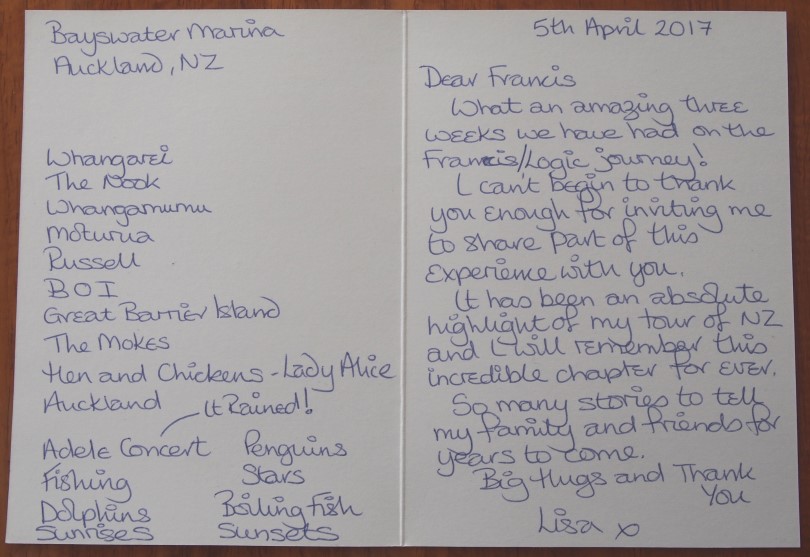 Bayswater Marina
Auckland, NZ
Whangarei
The Nook
Whangamumu
Moturua
Russell
BOI
Great Barrier Island
The Mokes
Hen and Chickens - Lady Alice
Auckland
It Rained!
Adele Concert Penguins
Fishing Stars
Dolphins Boiling Fish
Sunrises Sunsets
5th April 2017
Dear Francis
What an amazing three
weeks we have had on the
Francis/Logic journey!
I can't begin to thank
you enough for inviting me
to share part of this
experience with you.
It has been an absolute
highlight of my tour of NZ
and I will remember this
incredible chapter for ever.
So many stories to tell
my family and friends for
years to come.
Big Hugs and Thank
You
Lisa x